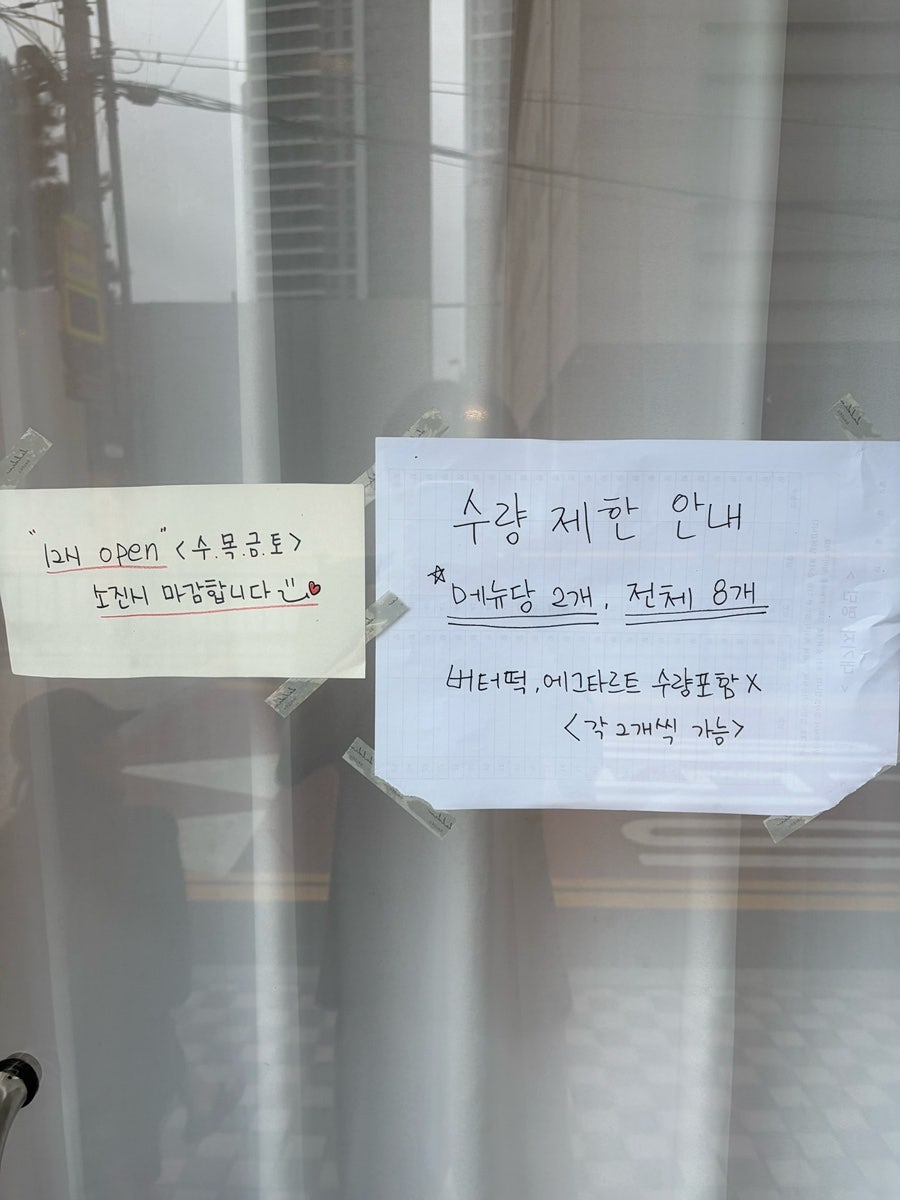 "12시 open" <수.목.금.토>
소진시 마감합니다
수량 제한 안내
☆메뉴당 2개, 전체 8개
버터떡, 에그타르트 수량포함 X
<각 2개씩 가능>